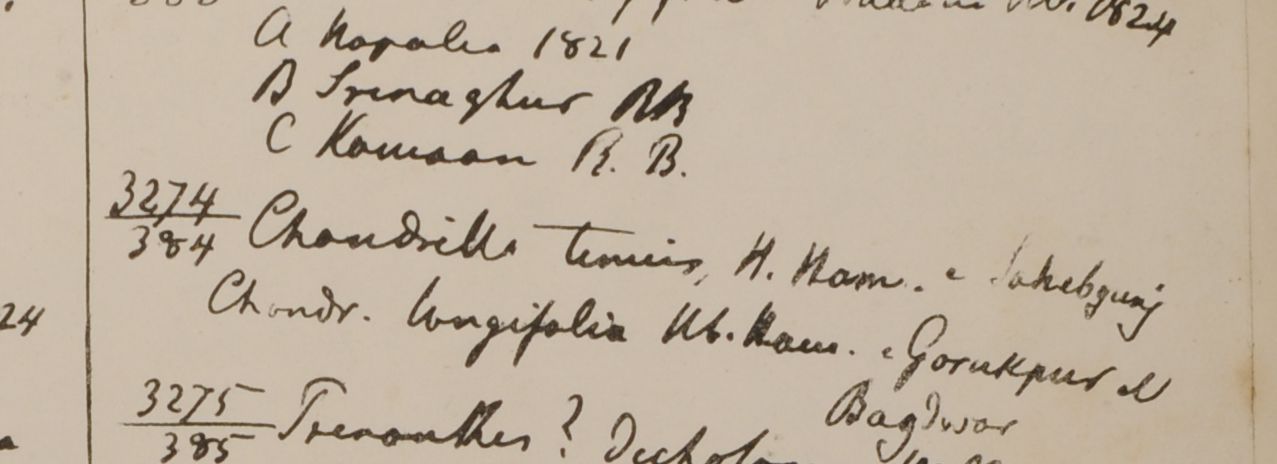 1824
A Napalia 1821
B Srinaghur RB
C Kamaon R. B.
3274
384 Chondrilla tenuis, H. Ham. e Sahebgunj
Chondr. longifolia Hb. Ham. e Gorukpur et
24
Bagdwar
3275
385 Prenanthes ?